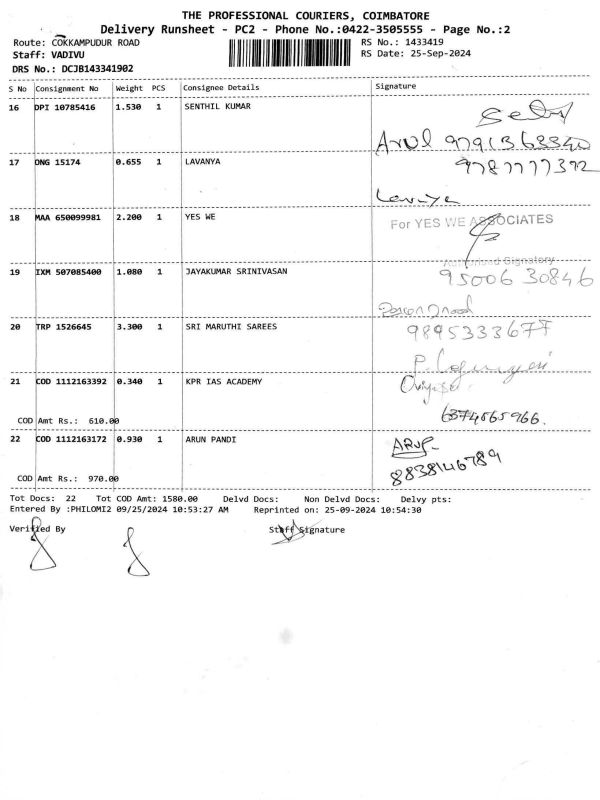 THE PROFESSIONAL COURIERS, COIMBATORE
Delivery Runsheet - PC2 - Phone No.:0422-3505555 - Page No.:2
Route: COKKAMPUDUR ROAD
RS No.: 1433419
Staff: VADIVU
RS Date: 25-Sep-2024
DRS No.: DCJB143341902
S No Consignment No Weight PCS Consignee Details Signature
16 DPI 10785416 1.530 1 SENTHIL KUMAR
Arul 9791363340
17 ONG 15174 0.655 1 LAVANYA
9787777372
Lavanya
18 MAA 650099981 2.200 1 YES WE
For YES WE ASSOCIATES
Authorised Signatory
19 IXM 507085400 1.080 1 JAYAKUMAR SRINIVASAN
95006 30846
20 TRP 1526645 3.300 1 SRI MARUTHI SAREES
9895333677
21 COD 1112163392 0.340 1 KPR IAS ACADEMY
COD Amt Rs.: 610.00
6374565966.
22 COD 1112163172 0.930 1 ARUN PANDI
8838146789
COD Amt Rs.: 970.00
Tot Docs: 22 Tot COD Amt: 1580.00 Delvd Docs: Non Delvd Docs: Delvy pts:
Entered By :PHILOMI2 09/25/2024 10:53:27 AM Reprinted on: 25-09-2024 10:54:30
Verified By Staff Signature